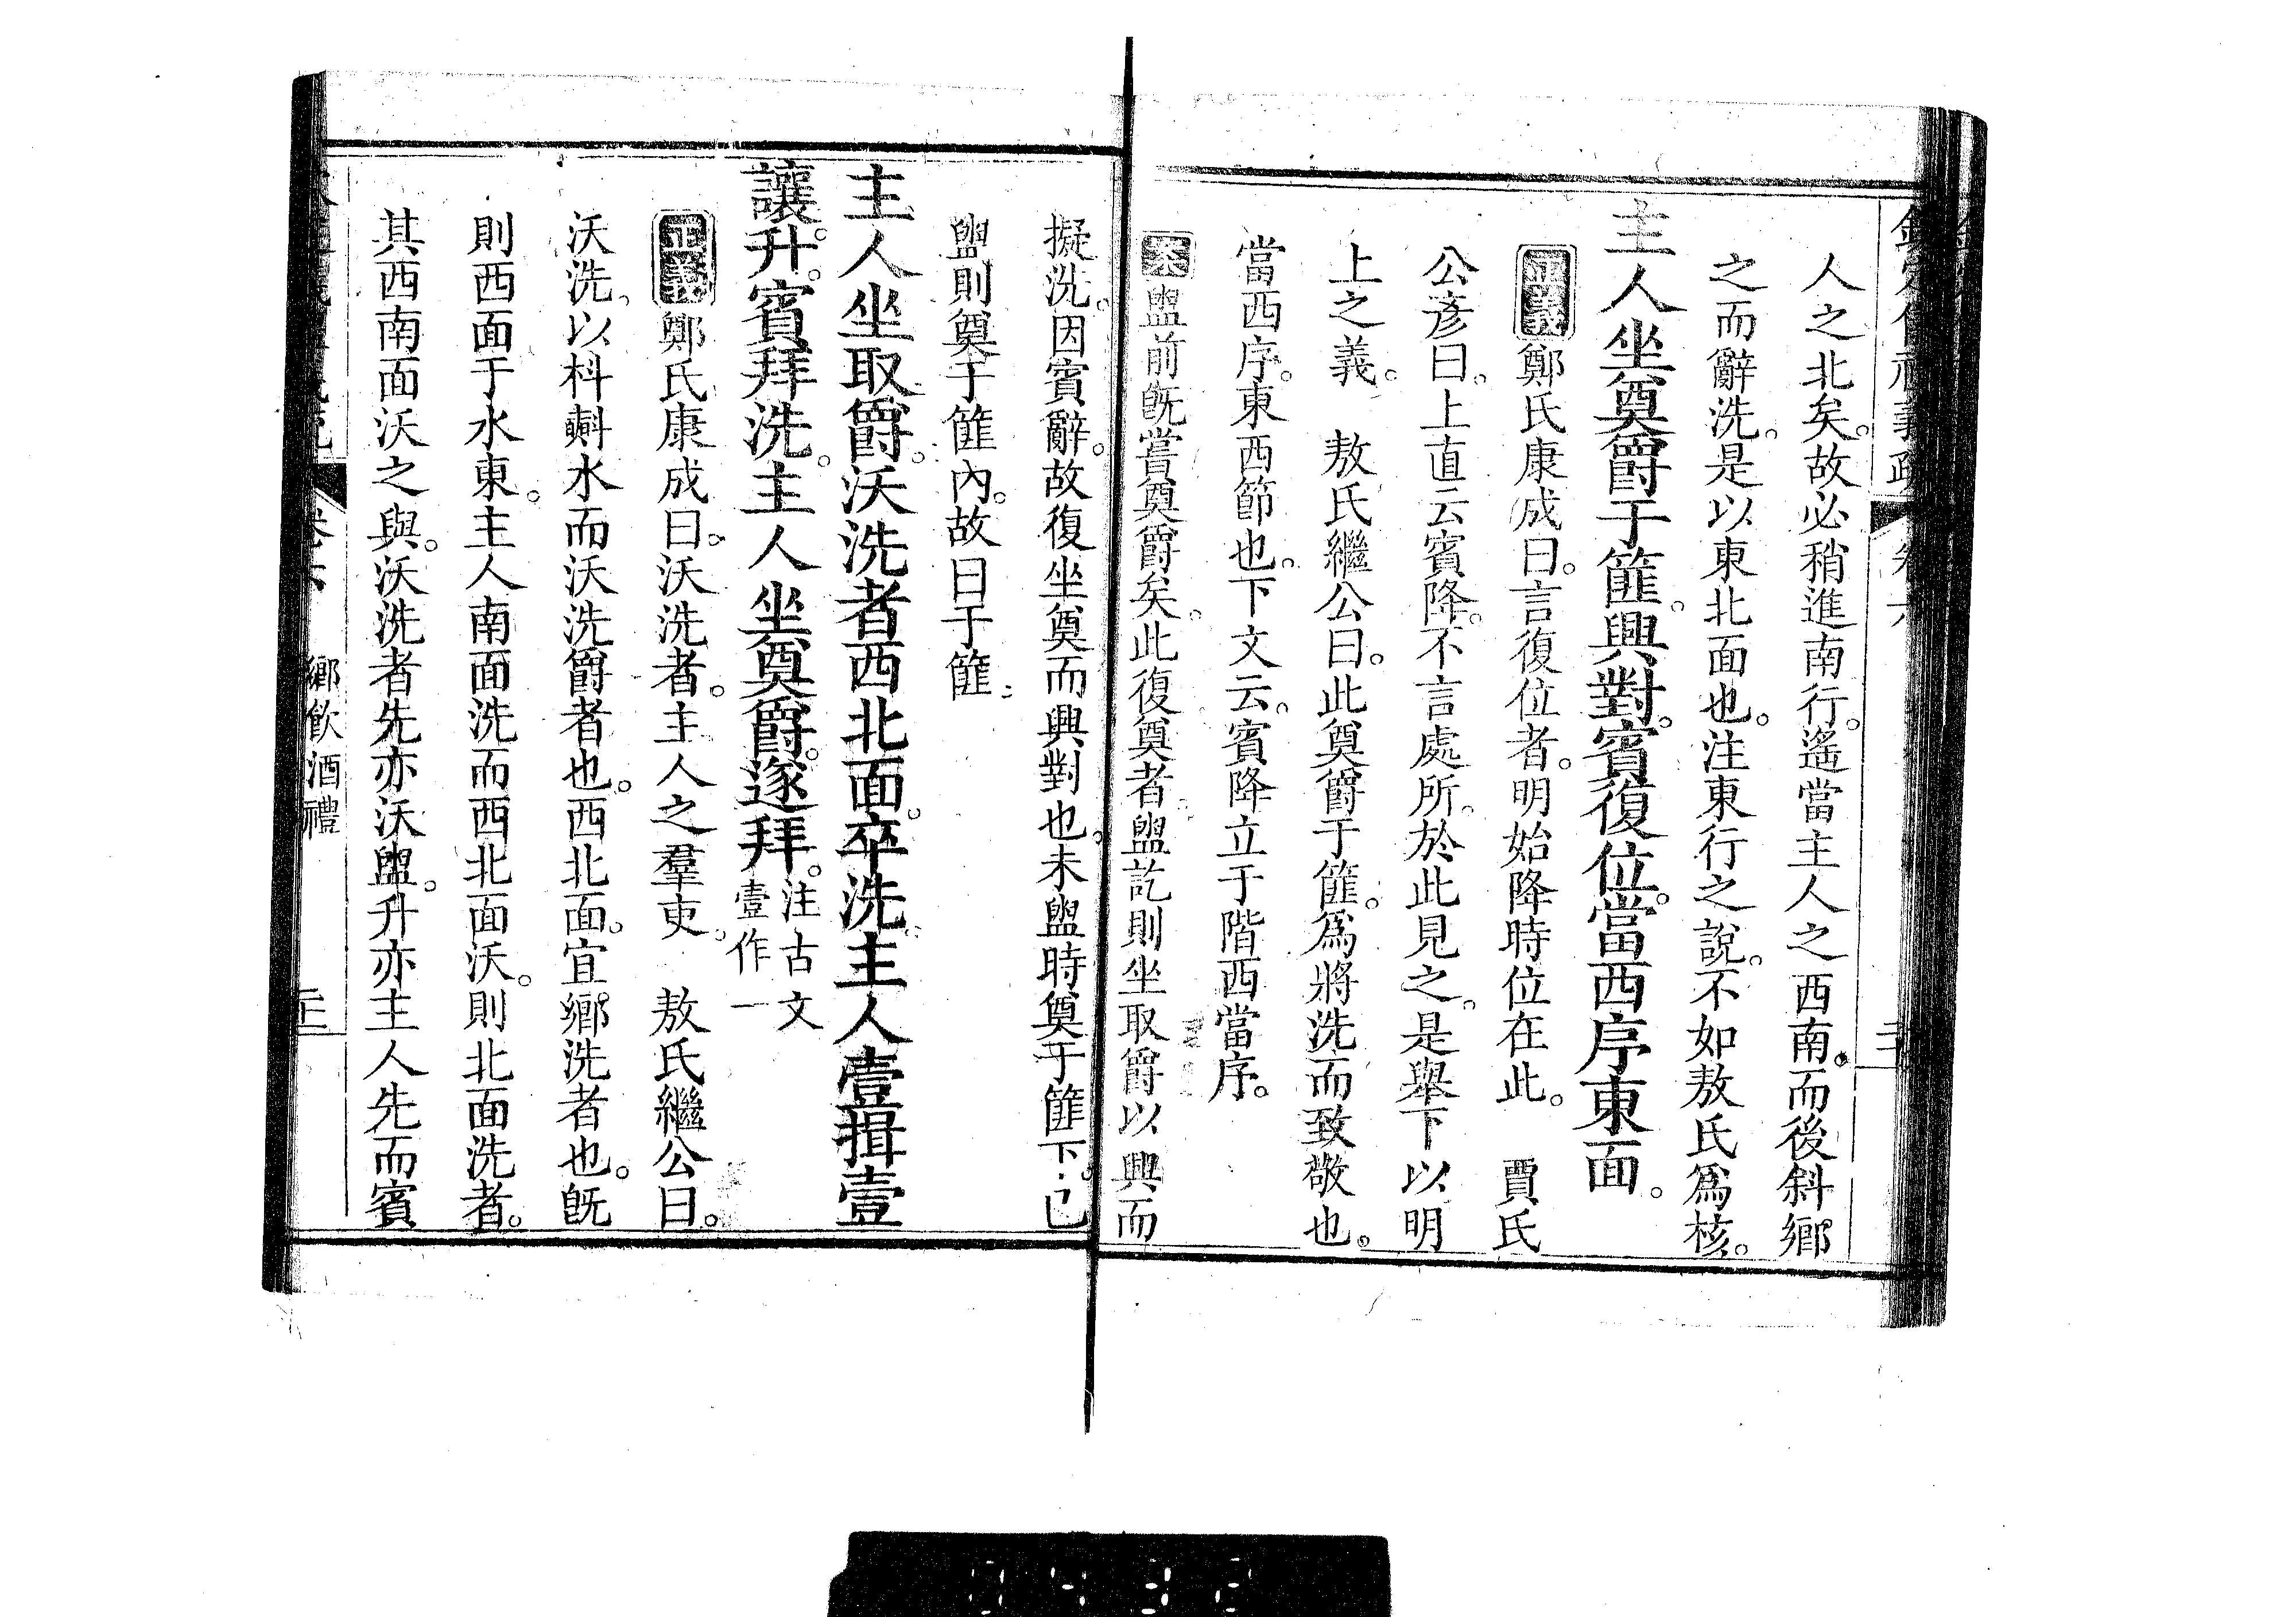 人之北矣。故必稍進南行。遙當主人之西南。而後斜鄉
之而辭洗。是以東北面也。注東行之說。不如敖氏爲核。
主人坐奠爵于篚。興對。賓復位。當西序東面。
正義鄭氏康成曰。言復位者。明始降時位在此。 賈氏
公彥曰。上直云賓降。不言處所。於此見之。是舉下以明
上之義。 敖氏繼公曰。此奠爵于篚。爲將洗而致敬也。
當西序。東西節也。下文云。賓降立于階西當序。
案盥前旣嘗奠爵矣。此復奠者。盥訖則坐取爵以興而
擬洗。因賓辭。故復坐奠而興對也。未盥時奠于篚下。已
盥則奠于篚內。故曰于篚。
主人坐取爵。沃洗者西北面。卒洗。主人壹揖壹
讓。升。賓拜洗。主人坐奠爵。遂拜。注古文
壹作一
正義鄭氏康成曰。沃洗者。主人之羣吏。 敖氏繼公曰。
沃洗。以枓㪺水而沃洗爵者也。西北面。宜鄉洗者也。旣
則西面于水東。主人南面洗而西北面沃。則北面洗者。
其西南面沃之與。沃洗者先亦沃盥。升亦主人先而賓
鄉飮酒禮